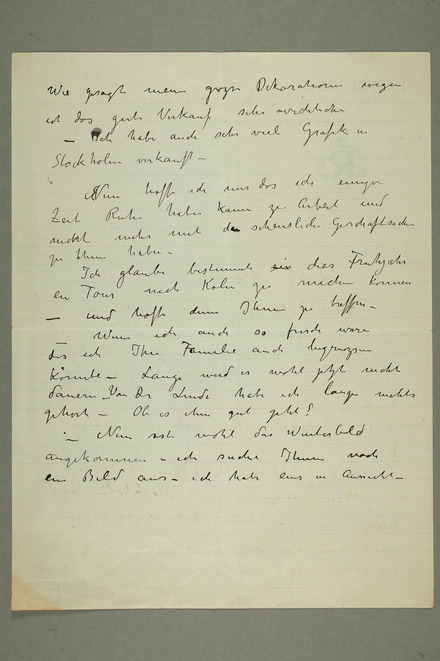 Wie gesagt meine grosse Dekorationen wegen
ist das gute Verkauf sehr
– Ich habe auch sehr viel Grafik in
Stockholm verkauft –
Nun hoffe ich nur das ich einige
Zeit Ruhe haben kann zu Arbeit und
nicht mehr mit den scheuslichen Geschäftsachen
zu thun haben –
Ich glaube bestimmt dies Frühjahr
en Tour nach Köln zu machen können
– und hoffe dann Ihnen zu treffen –
– Wenn ich auch so frisch ware
das ich Ihre Familie auch begrüzsen
könnte – Lange wird es wohl jetzt nicht
dauern – Von Dr Linde habe ich lange nichts
gehört – Ob es ihm gut geht?
– Nun ist wohl das Winterbild
angekommen – ich suche Ihnen noch
ein Bild aus – ich habe eins in Aussicht –